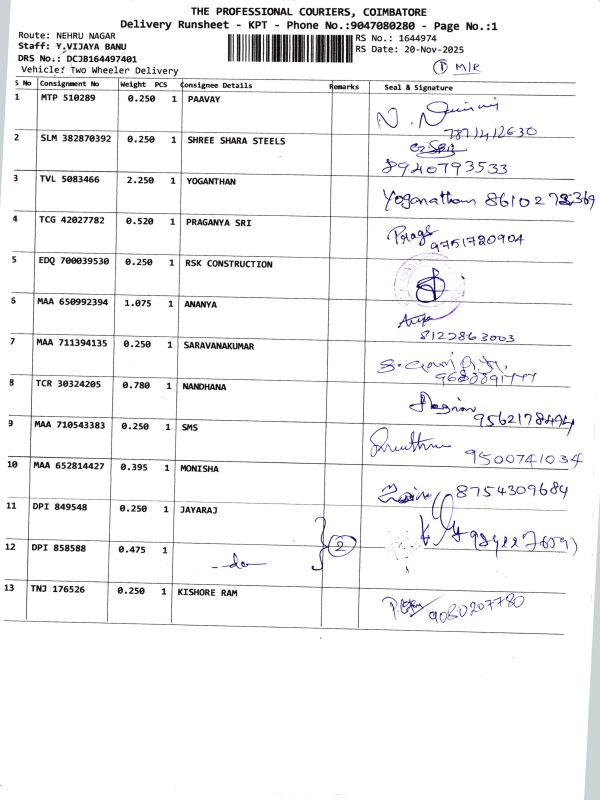 THE PROFESSIONAL COURIERS, COIMBATORE
Delivery Runsheet - KPT - Phone No.:9047080280 - Page No.:1
Route: NEHRU NAGAR
Staff: Y.VIJAYA BANU
DRS No.: DCJB164497401
Vehicle: Two Wheeler Delivery
RS No.: 1644974
RS Date: 20-Nov-2025
① M/R
S No Consignment No Weight PCS Consignee Details Remarks Seal & Signature
1 MTP 510289 0.250 1 PAAVAY
2 SLM 382870392 0.250 1 SHREE SHARA STEELS 8940793533
3 TVL 5083466 2.250 1 YOGANTHAN Yoganathan
4 TCG 42027782 0.520 1 PRAGANYA SRI 9751780904
5 EDQ 700039530 0.250 1 RSK CONSTRUCTION
6 MAA 650992394 1.075 1 ANANYA 8122863003
7 MAA 711394135 0.250 1 SARAVANAKUMAR
8 TCR 30324205 0.780 1 NANDHANA
9 MAA 710543383 0.250 1 SMS 9500741034
10 MAA 652814427 0.395 1 MONISHA 8754309684
11 DPI 849548 0.250 1 JAYARAJ
12 DPI 858588 0.475 1 -do- ②
13 TNJ 176526 0.250 1 KISHORE RAM 9080207780